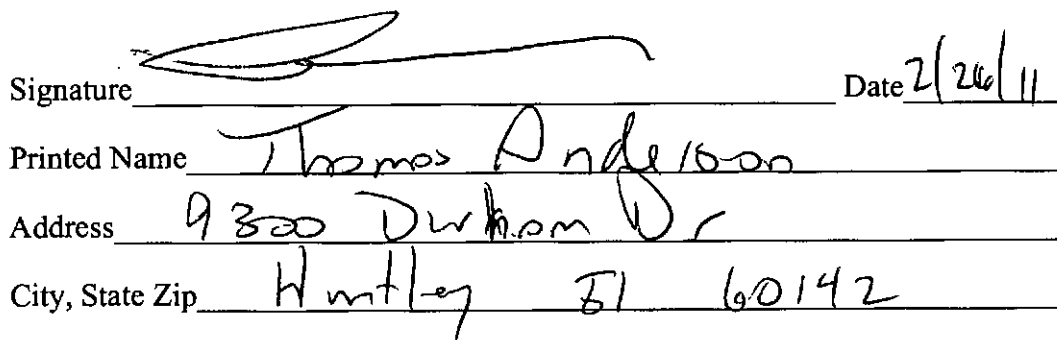 Signature Date 2/26/11
Printed Name Thomas Anderson
Address 9300 Durham Dr
City, State Zip Huntley Il 60142